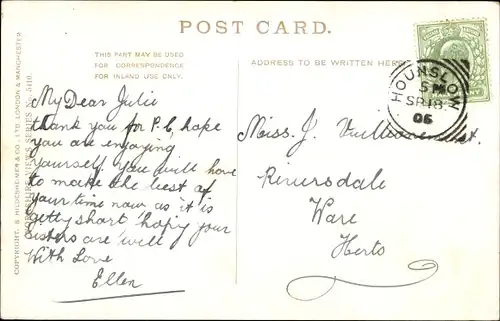 POST CARD.
THIS PART MAY BE USED
FOR CORRESPONDENCE
FOR INLAND USE ONLY.
ADDRESS TO BE WRITTEN HERE
HOUNSLOW
5 PM
SP 18
06
COPYRIGHT. S. HILDESHEIMER & CO., LTD. LONDON & MANCHESTER
SERIES No. 5410.
My Dear Julie
thank you for P.C, hope
you are enjoying
yourself. you will have
to make the best of
your time now as it is
getty short 'hopy your
Sisters are 'well
With Love
Ellen
Miss. J.
Reversdale
Ware
Herts